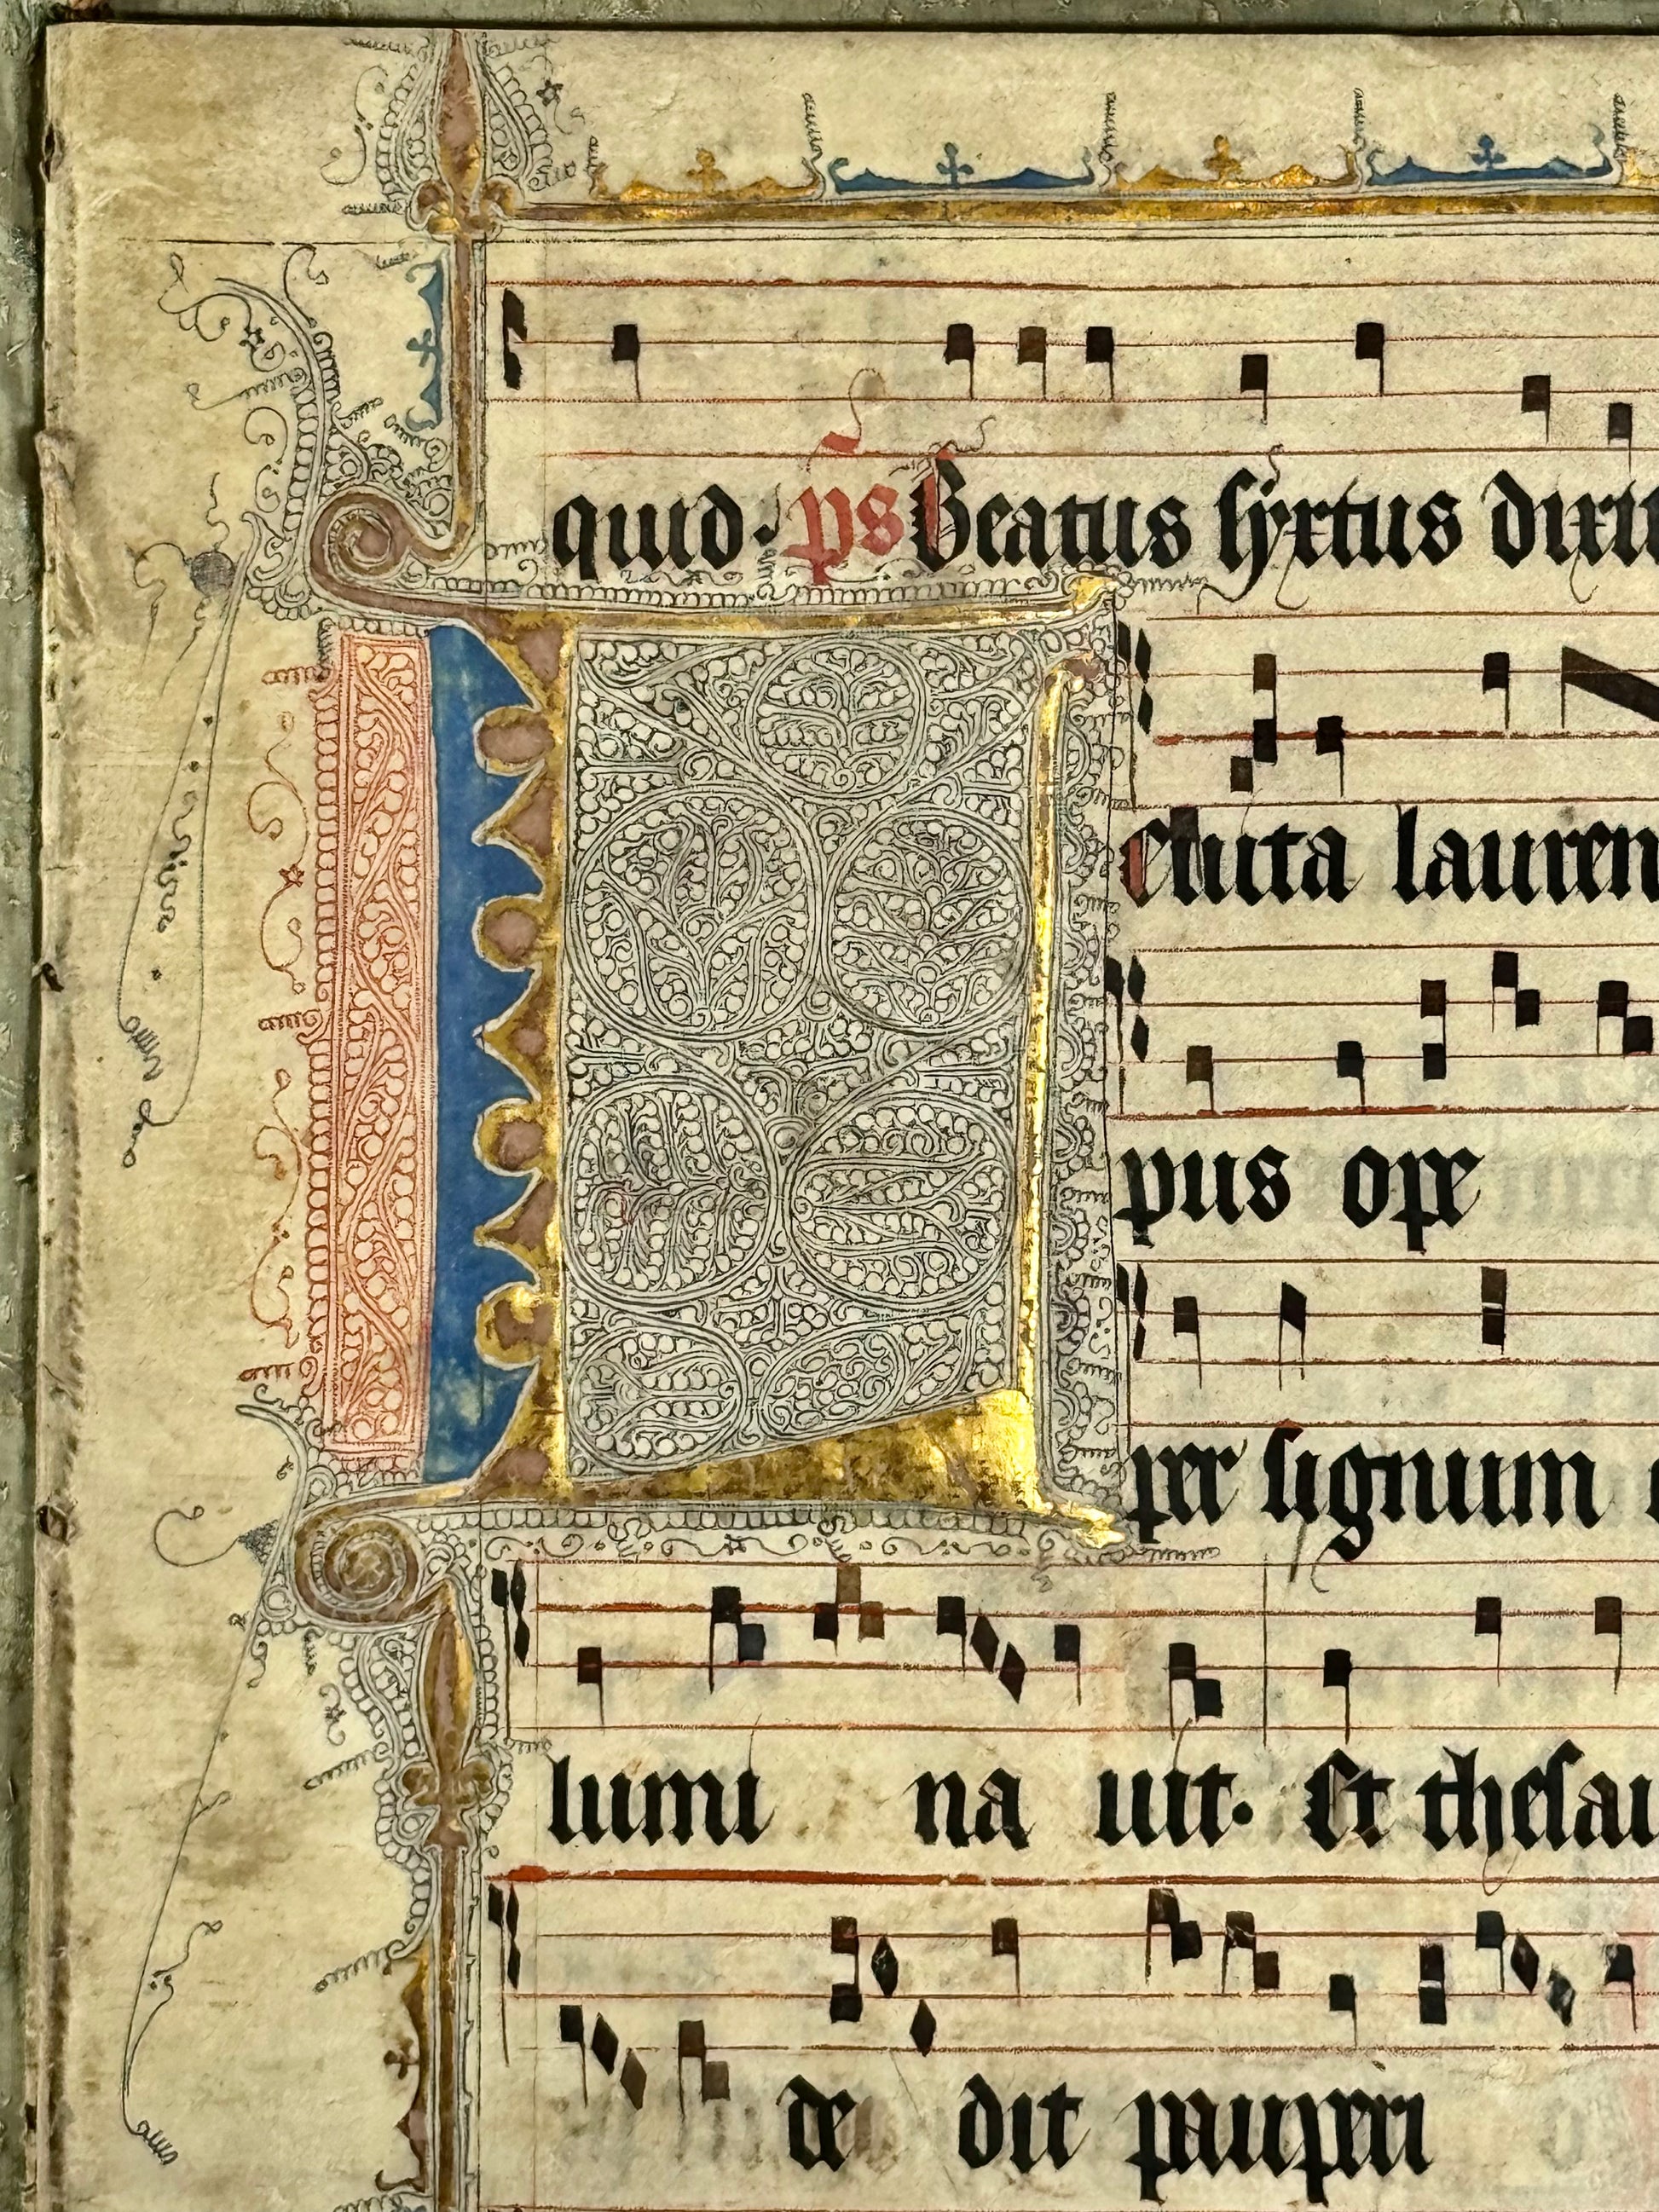 quid. ps Beatus syxtus dixi
LEuita lauren
pus ope
per signum
lumi na uit. Et thesau
de dit pauperi